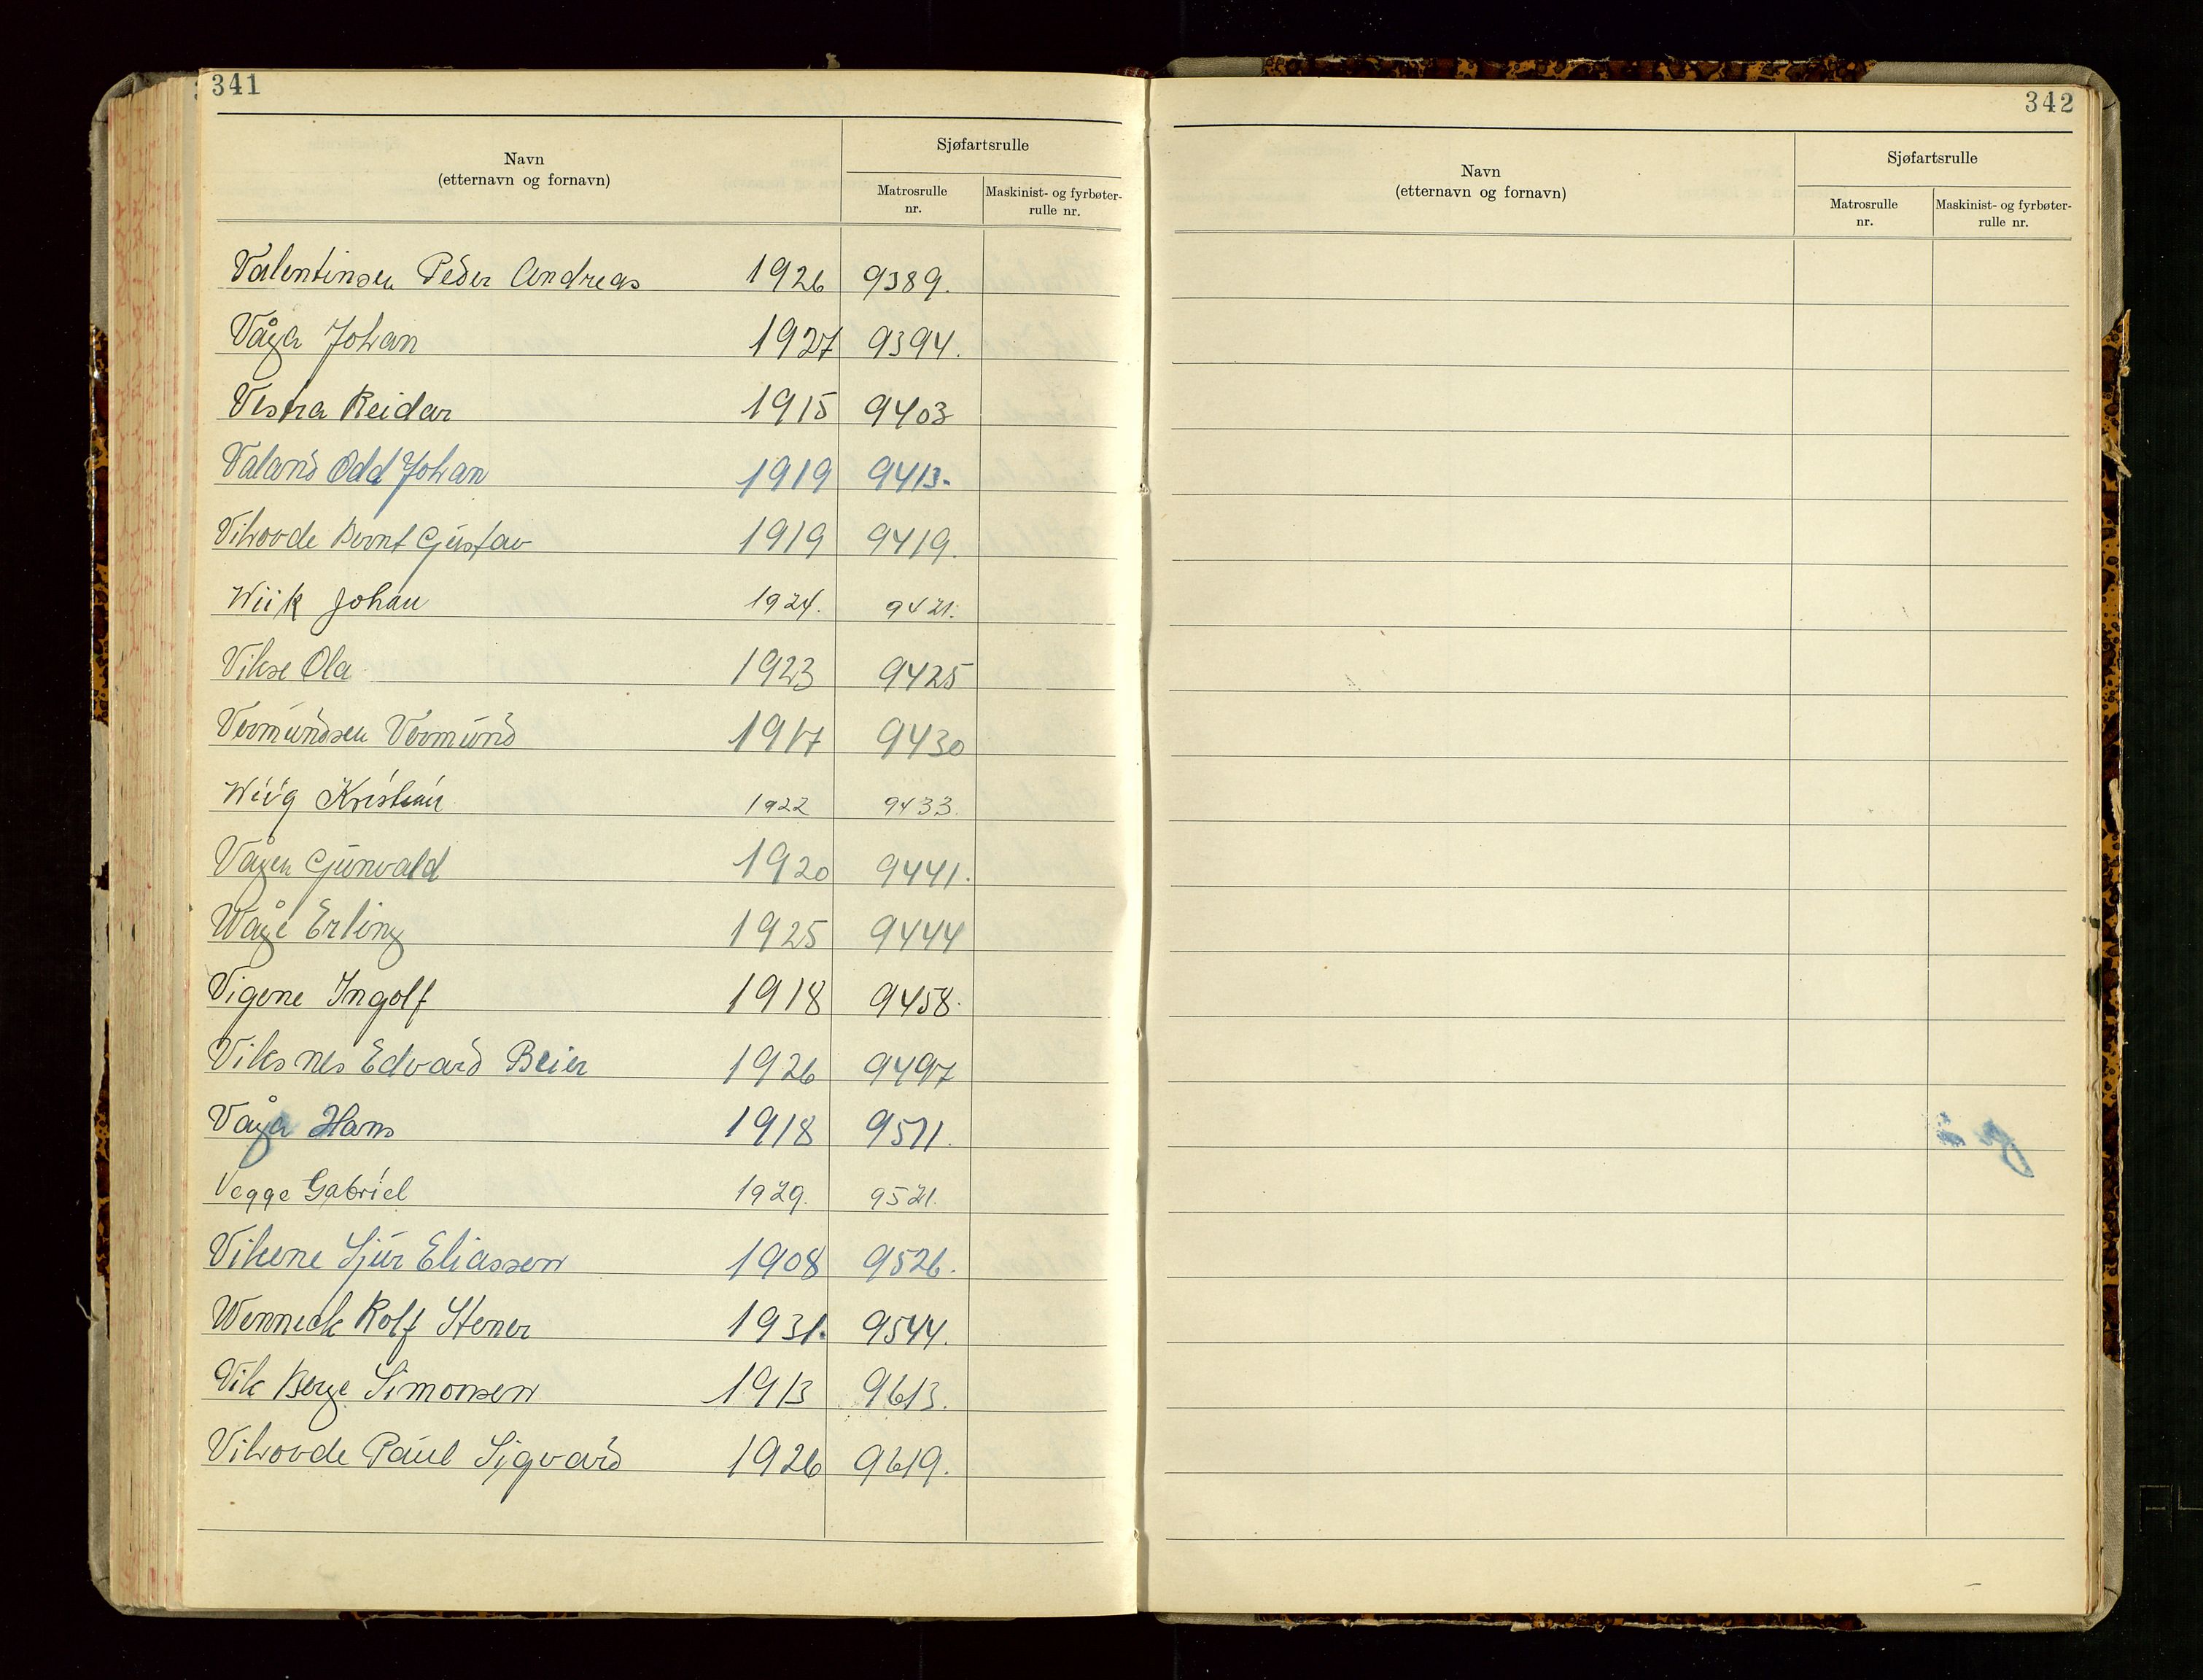 341
Navn
(etternavn og fornavn)
Sjøfartsrulle
Matrosrulle
nr.
Maskinist- og fyrbøter-
rulle nr.
Valentinsen Peder Andreas 1926 9389.
Våga Johan 1927 9394.
Vestra Reidar 1915 9403
Valand Odd Johan 1919 9413.
Vihovde Bernt Gustav 1919 9419.
Wiik Johan 1924. 9421.
Vikse Ola 1923 9425
Vermundsen Vermund 1917 9430
Wiig Kristian 1922 9433.
Vågen Gunvald 1920 9441.
Våge Erling 1925 9444
Vigene Ingolf 1918 9458.
Viksnes Edvard Beier 1926 9497
Våga Hans 1918 9511.
Vegge Gabriel 1929. 9521.
Vikene Sjur Eliassen 1908 9526.
Wenneck Rolf Stener 1931. 9544.
Vik Berge Simonsen 1913 9613.
Vihovde Paul Sigvard 1926 9619.
342
Navn
(etternavn og fornavn)
Sjøfartsrulle
Matrosrulle
nr.
Maskinist- og fyrbøter-
rulle nr.